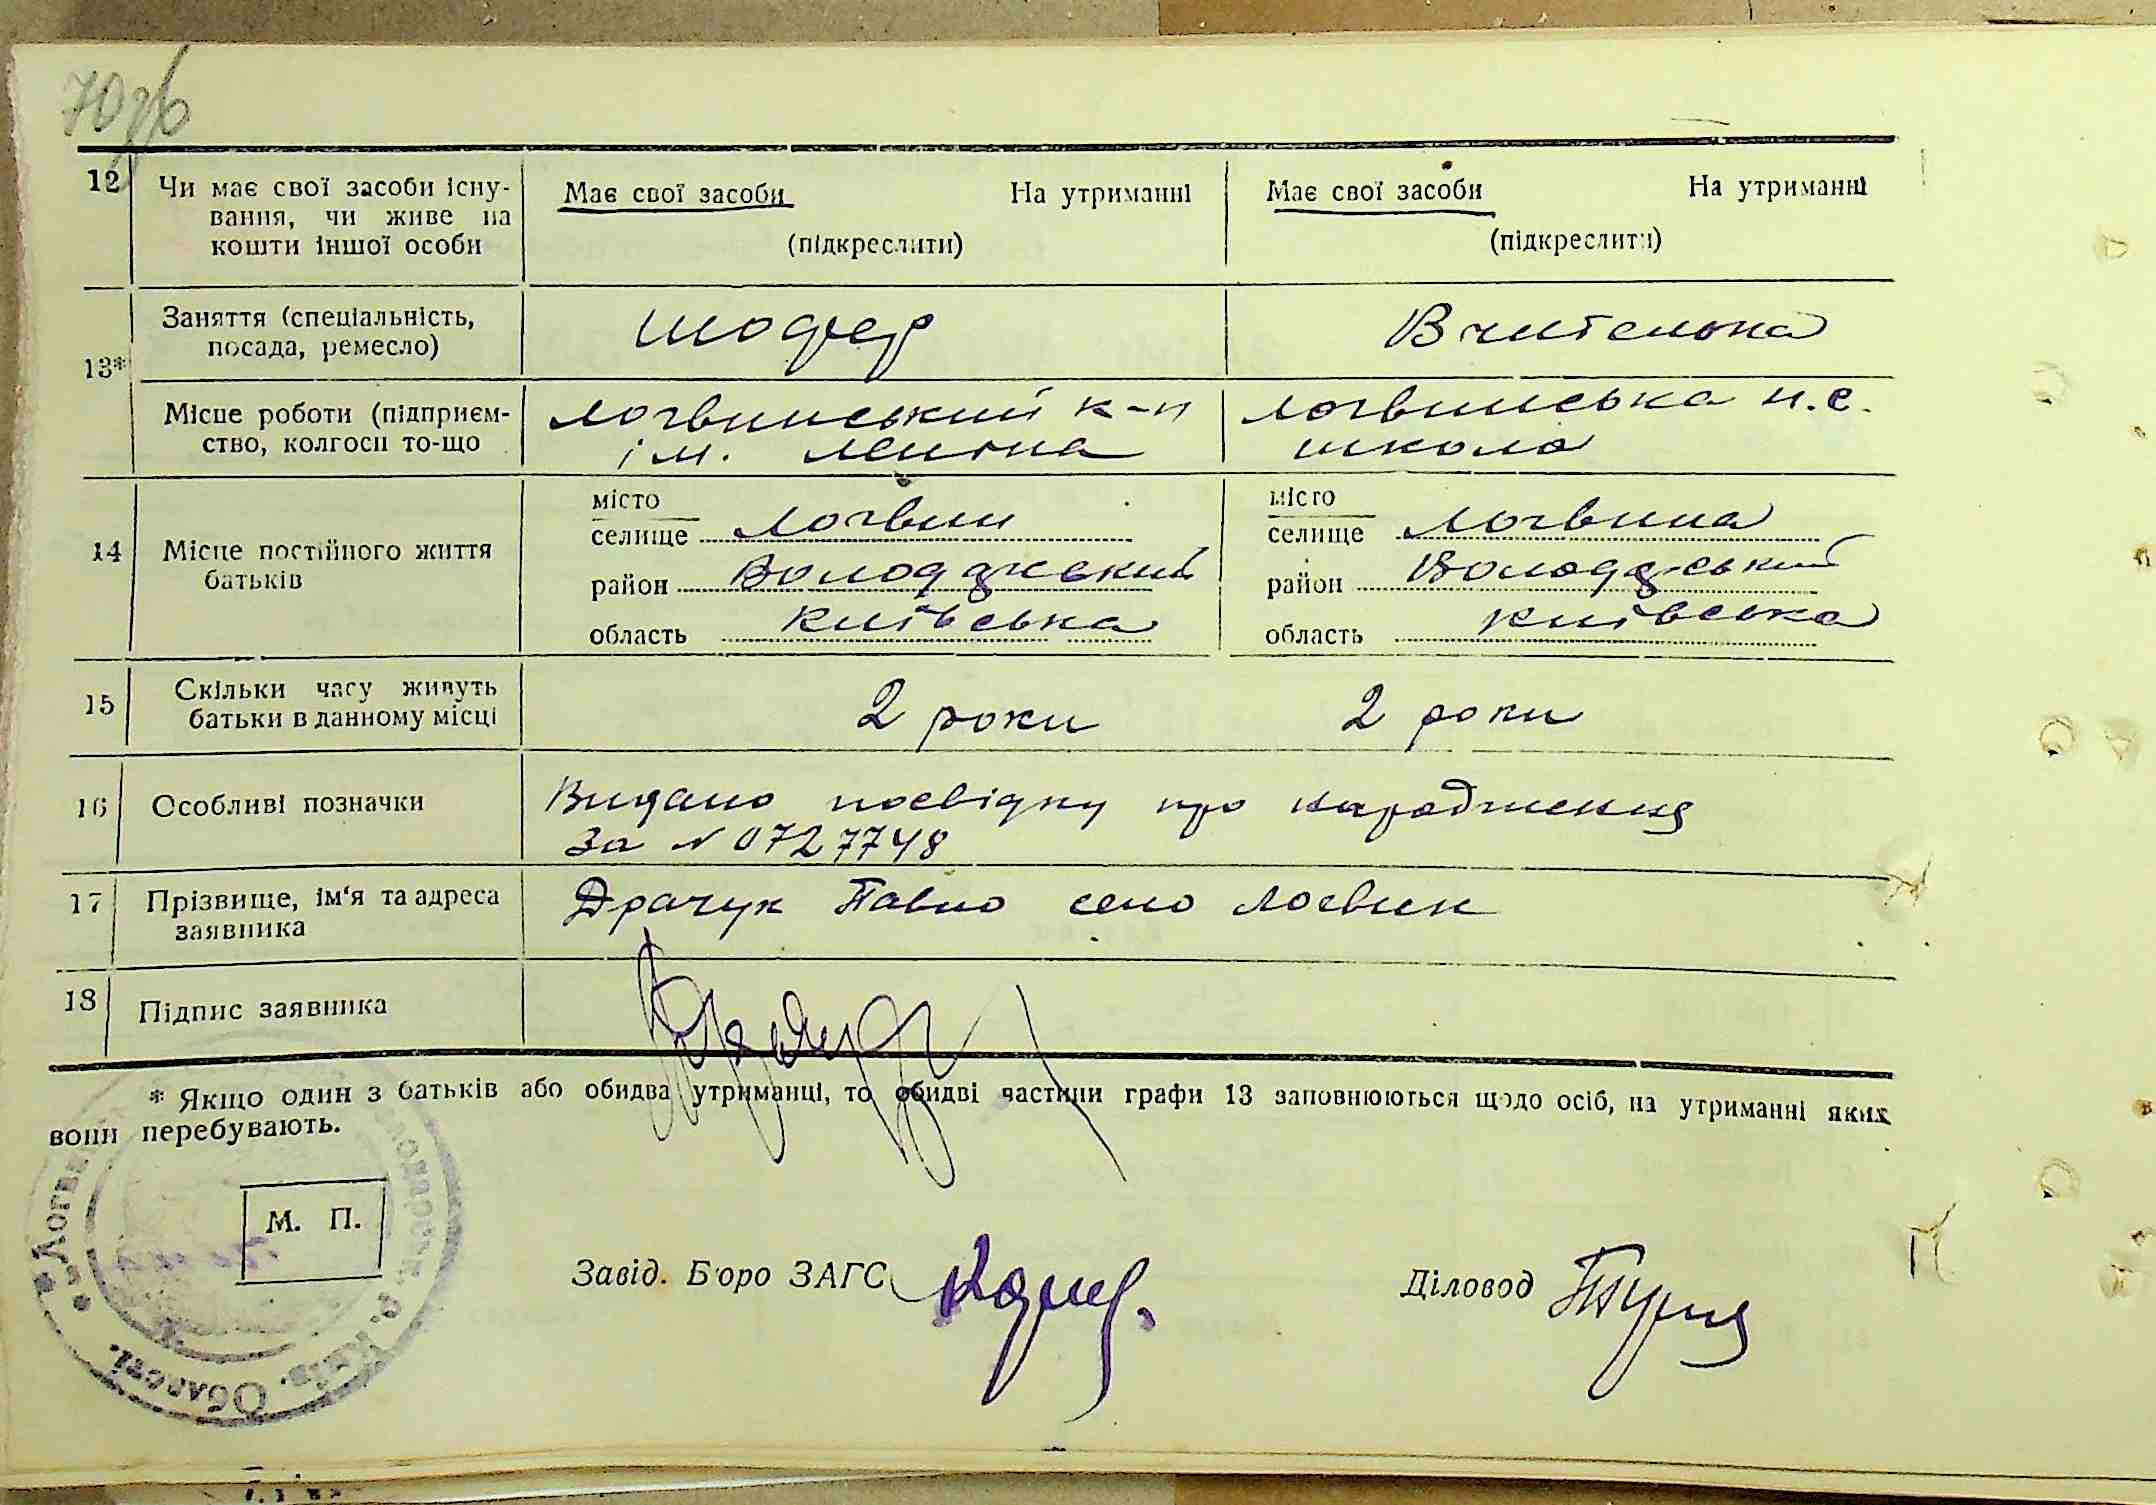 70зв
12 Чи має свої засоби існу-
вання, чи живе на
кошти іншої особи
Має свої засоби На утриманні
(підкреслити)
Має свої засоби На утриманні
(підкреслити)
13*
Заняття (спеціальність,
посада, ремесло)
шофер
Вчителька
Місце роботи (підприєм-
ство, колгосп то-що
Логвинський к-п
ім. Леніна
Логвинська н.с.
школа
14 Місце постійного життя
батьків
місто
селище Логвин
район Володарський
область Київська
місто
селище Логвина
район Володарський
область Київська
15 Скільки часу живуть
батьки в данному місці
2 роки
2 роки
16 Особливі позначки
Видано посвідку про народження
За N 0727748
17 Прізвище, ім‘я та адреса
заявника
Драчук Павло село Логвин
18 Підпис заявника
* Якщо один з батьків або обидва утриманці, то обидві частини графи 13 заповнюються щодо осіб, на утриманні яких
вони перебувають.
М. П.
р. Київ. Області.
Завід. Бюро ЗАГС
Діловод